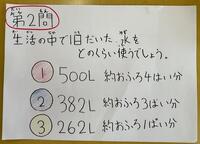 第2問
だい もん
生活の中で1日だいたい水を
せいかつ なか にち みず
どのくらい使うでしょう。
つか
1 500L 約おふろ4はい分
2 382L 約おふろ3ばい分
3 262L 約おふろ1ぱい分